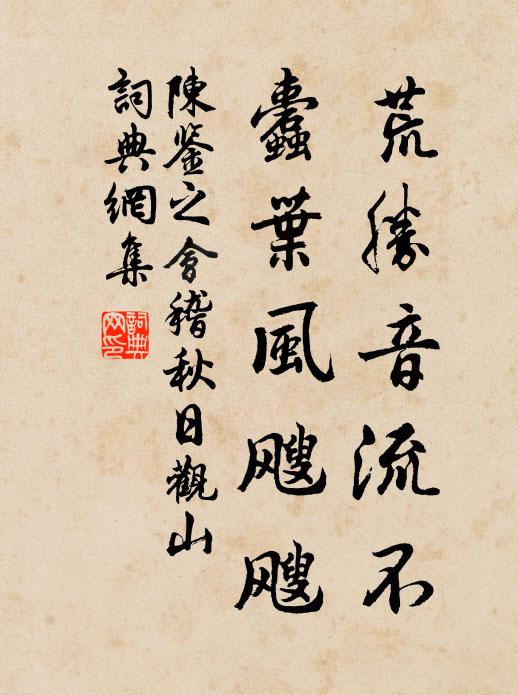 荒勝音流不
蠹葉風颼颼
陳鉴之會稽秋日觀山
詞典網集
詞典
网印